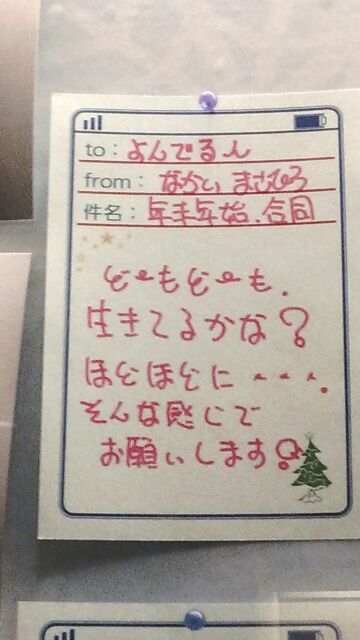 to：よんでる人
from：なかい まさひろ
件名：年末年始、合同
ど〜もど〜も．
生きてるかな？
ほどほどに・・・．
そんな感じで
お願いします？